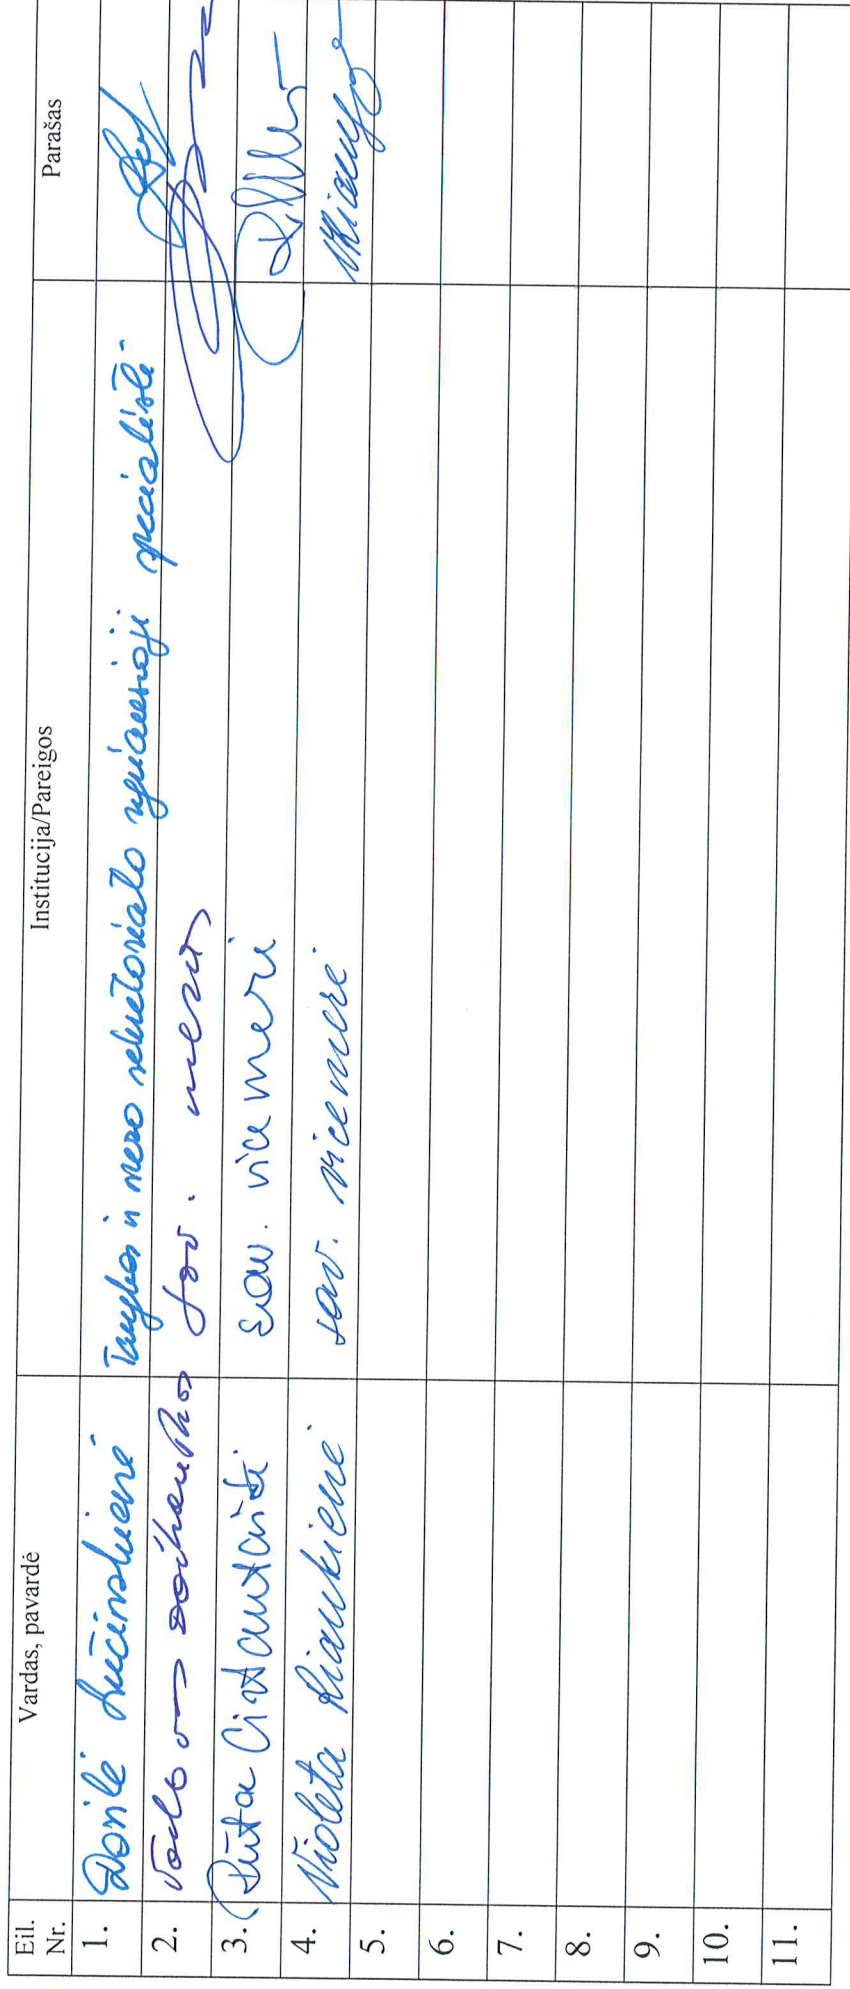 Eil. Nr. Vardas, pavardė Institucija/Pareigos Parašas
1. Dovilė Tarybos ir mero sekretoriato vyriausioji specialistė
2. sav. meras
3. Rūta Cintautaitė sav. vicemerė
4. Violeta Kiaukienė sav. vicemerė
5.
6.
7.
8.
9.
10.
11.